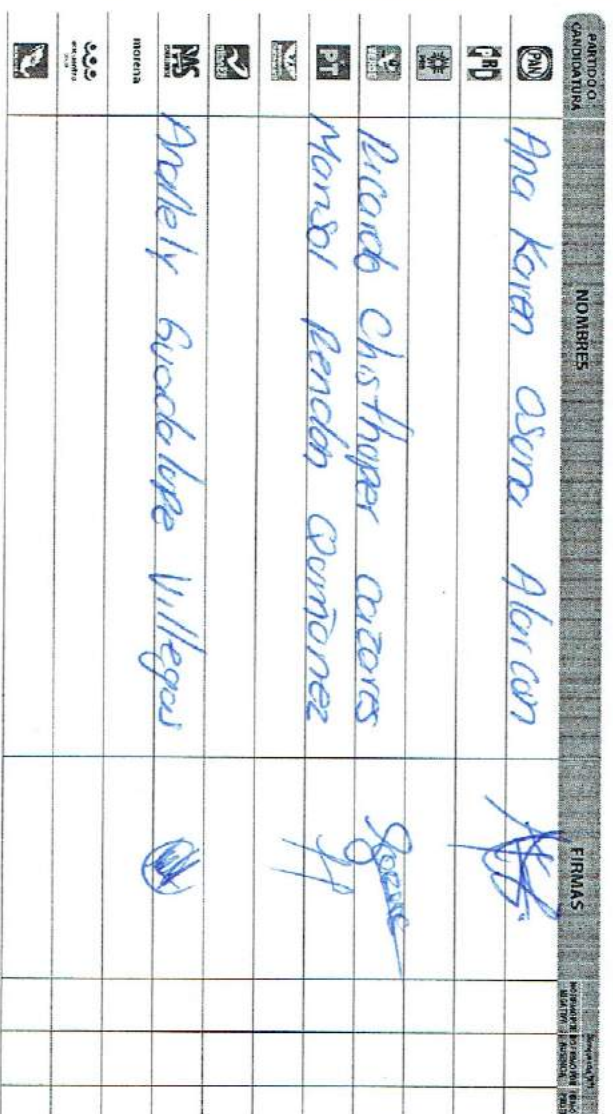 PARTIDO O CANDIDATURA NOMBRES FIRMAS
PAN Ana Karen Osuna Alarcon
PRD
VERDE Ricardo Chisthoper Cazares
PT Marisol Rendon Quiñonez
PAS Anallely Guadalupe Villegas
morena
encuentro